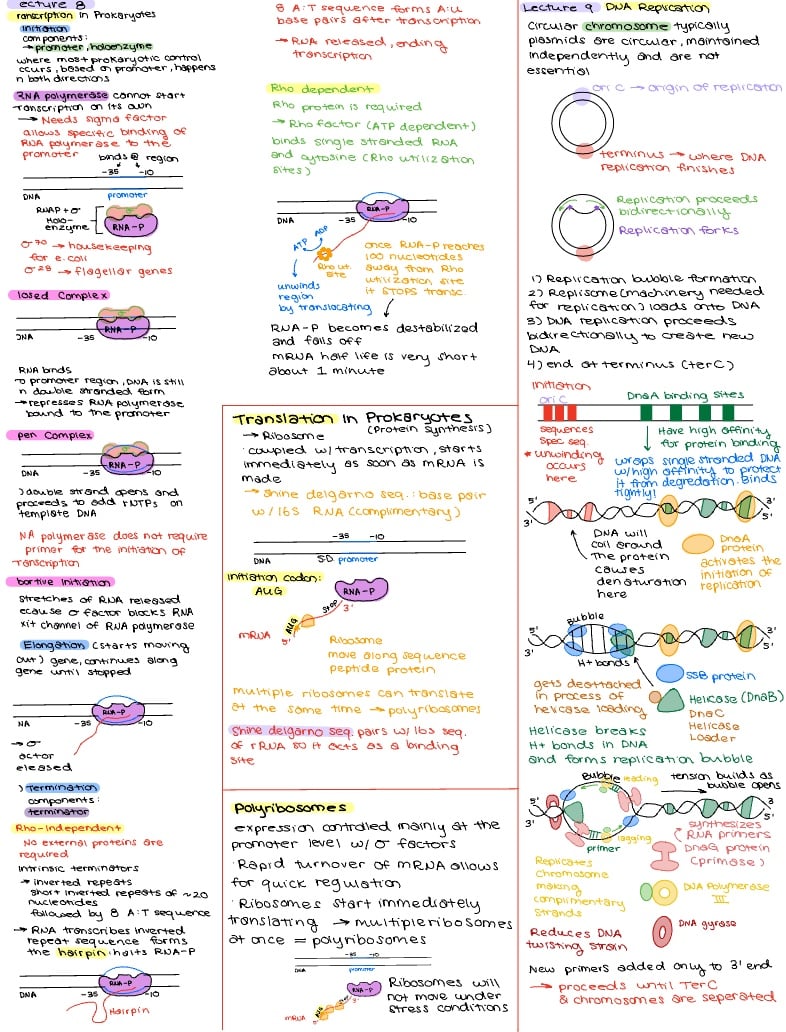 ecture 8
ranscription in Prokaryotes
Initiation
components:
→ promoter, holoenzyme
where most prokaryotic control
ccurs, based on promoter, happens
n both directions
RNA polymerase cannot start
transcription on its own
→ Needs sigma factor
allows specific binding of
RNA polymerase to the
promoter
binds @ region
-35 -10
DNA promoter
RNAP + σ
Holo-
enzyme
RNA-P
σ70 → housekeeping
for e.coli
σ28 → flagellar genes
losed Complex
RNA-P
DNA -35 -10
RNA binds
o promoter region, DNA is still
n double stranded form
→ represses RNA polymerase
bound to the promoter
pen Complex
RNA-P
DNA -35 -10
) double strand opens and
proceeds to add rNTPs on
template DNA
NA polymerase does not require
primer for the initiation of
transcription
bortive Initiation
stretches of RNA released
ecause σ factor blocks RNA
xit channel of RNA polymerase
Elongation (starts moving
out) gene, continues along
gene until stopped
RNA-P
NA -35 -10
→ σ
actor
eleased
) Termination
components:
terminator
Rho-Independent
No external proteins are
required
Intrinsic terminators
→ inverted repeats
short inverted repeats of ~20
nucleotides
followed by 8 A:T sequence
→ RNA transcribes inverted
repeat sequence forms
the hairpin: halts RNA-P
RNA-P
DNA -35 -10
Hairpin
8 A:T sequence forms A:U
base pairs after transcription
→ RNA released, ending
transcription
Rho dependent
Rho protein is required
→ Rho factor (ATP dependent)
binds single stranded RNA
and cytosine (Rho utilization
sites)
RNA-P
DNA -35 -10
ATP ADP
Rho ut.
site
unwinds
region
by translocating
once RNA-P reaches
100 nucleotides
away from Rho
utilization site
it STOPS transc.
RNA-P becomes destabilized
and falls off
mRNA half life is very short
about 1 minute
Translation in Prokaryotes
(Protein synthesis)
→ Ribosome
· coupled w/ transcription, starts
immediately as soon as mRNA is
made
→ Shine delgarno seq.: base pair
w/ 16S RNA (complimentary)
-35 -10
DNA S.D. promoter
Initiation codon:
AUG
RNA-P
STOP 3'
AUG
mRNA 5'
Ribosome
move along sequence
peptide protein
multiple ribosomes can translate
at the same time → polyribosomes
Shine delgarno seq. pairs w/ 16s seq.
of rRNA so it acts as a binding
site
Polyribosomes
expression controlled mainly at the
promoter level w/ σ factors
· Rapid turnover of mRNA allows
for quick regulation
· Ribosomes start immediately
translating → multiple ribosomes
at once = polyribosomes
-35 -10
DNA promoter
RNA-P
Stop 3'
AUG
mRNA 5'
Ribosomes will
not move under
stress conditions
Lecture 9 DNA Replication
Circular chromosome typically
plasmids are circular, maintained
independently and are not
essential
ori C → origin of replication
terminus → where DNA
replication finishes
Replication proceeds
bidirectionally
Replication forks
1) Replication bubble formation
2) Replisome (machinery needed
for replication) loads onto DNA
3) DNA replication proceeds
bidirectionally to create new
DNA
4) end at terminus (terC)
Initiation
ori C
DnaA binding sites
sequences
Spec seq.
* unwinding
occurs
here
Have high affinity
for protein binding
wraps single stranded DNA
w/high affinity to protect
it from degredation. Binds
tightly!
5' 3'
3' 5'
DNA will
coil around
The protein
causes
denaturation
here
DnaA
protein
activates the
initiation of
replication
Bubble
5' 3'
3' 5'
H+ bonds
gets desttached
in process of
helicase loading
SSB protein
Helicase (DnaB)
DnaC
Helicase
Loader
Helicase breaks
H+ bonds in DNA
and forms replication bubble
Bubble leading
tension builds as
bubble opens
5' 3'
3' 5'
lagging
primer
synthesizes
RNA primers
DnaG protein
(primase)
Replicates
chromosome
making
complimentary
strands
DNA Polymerase
III
DNA gyrase
Reduces DNA
twisting strain
New primers added only to 3' end
→ proceeds until TerC
& chromosomes are seperated